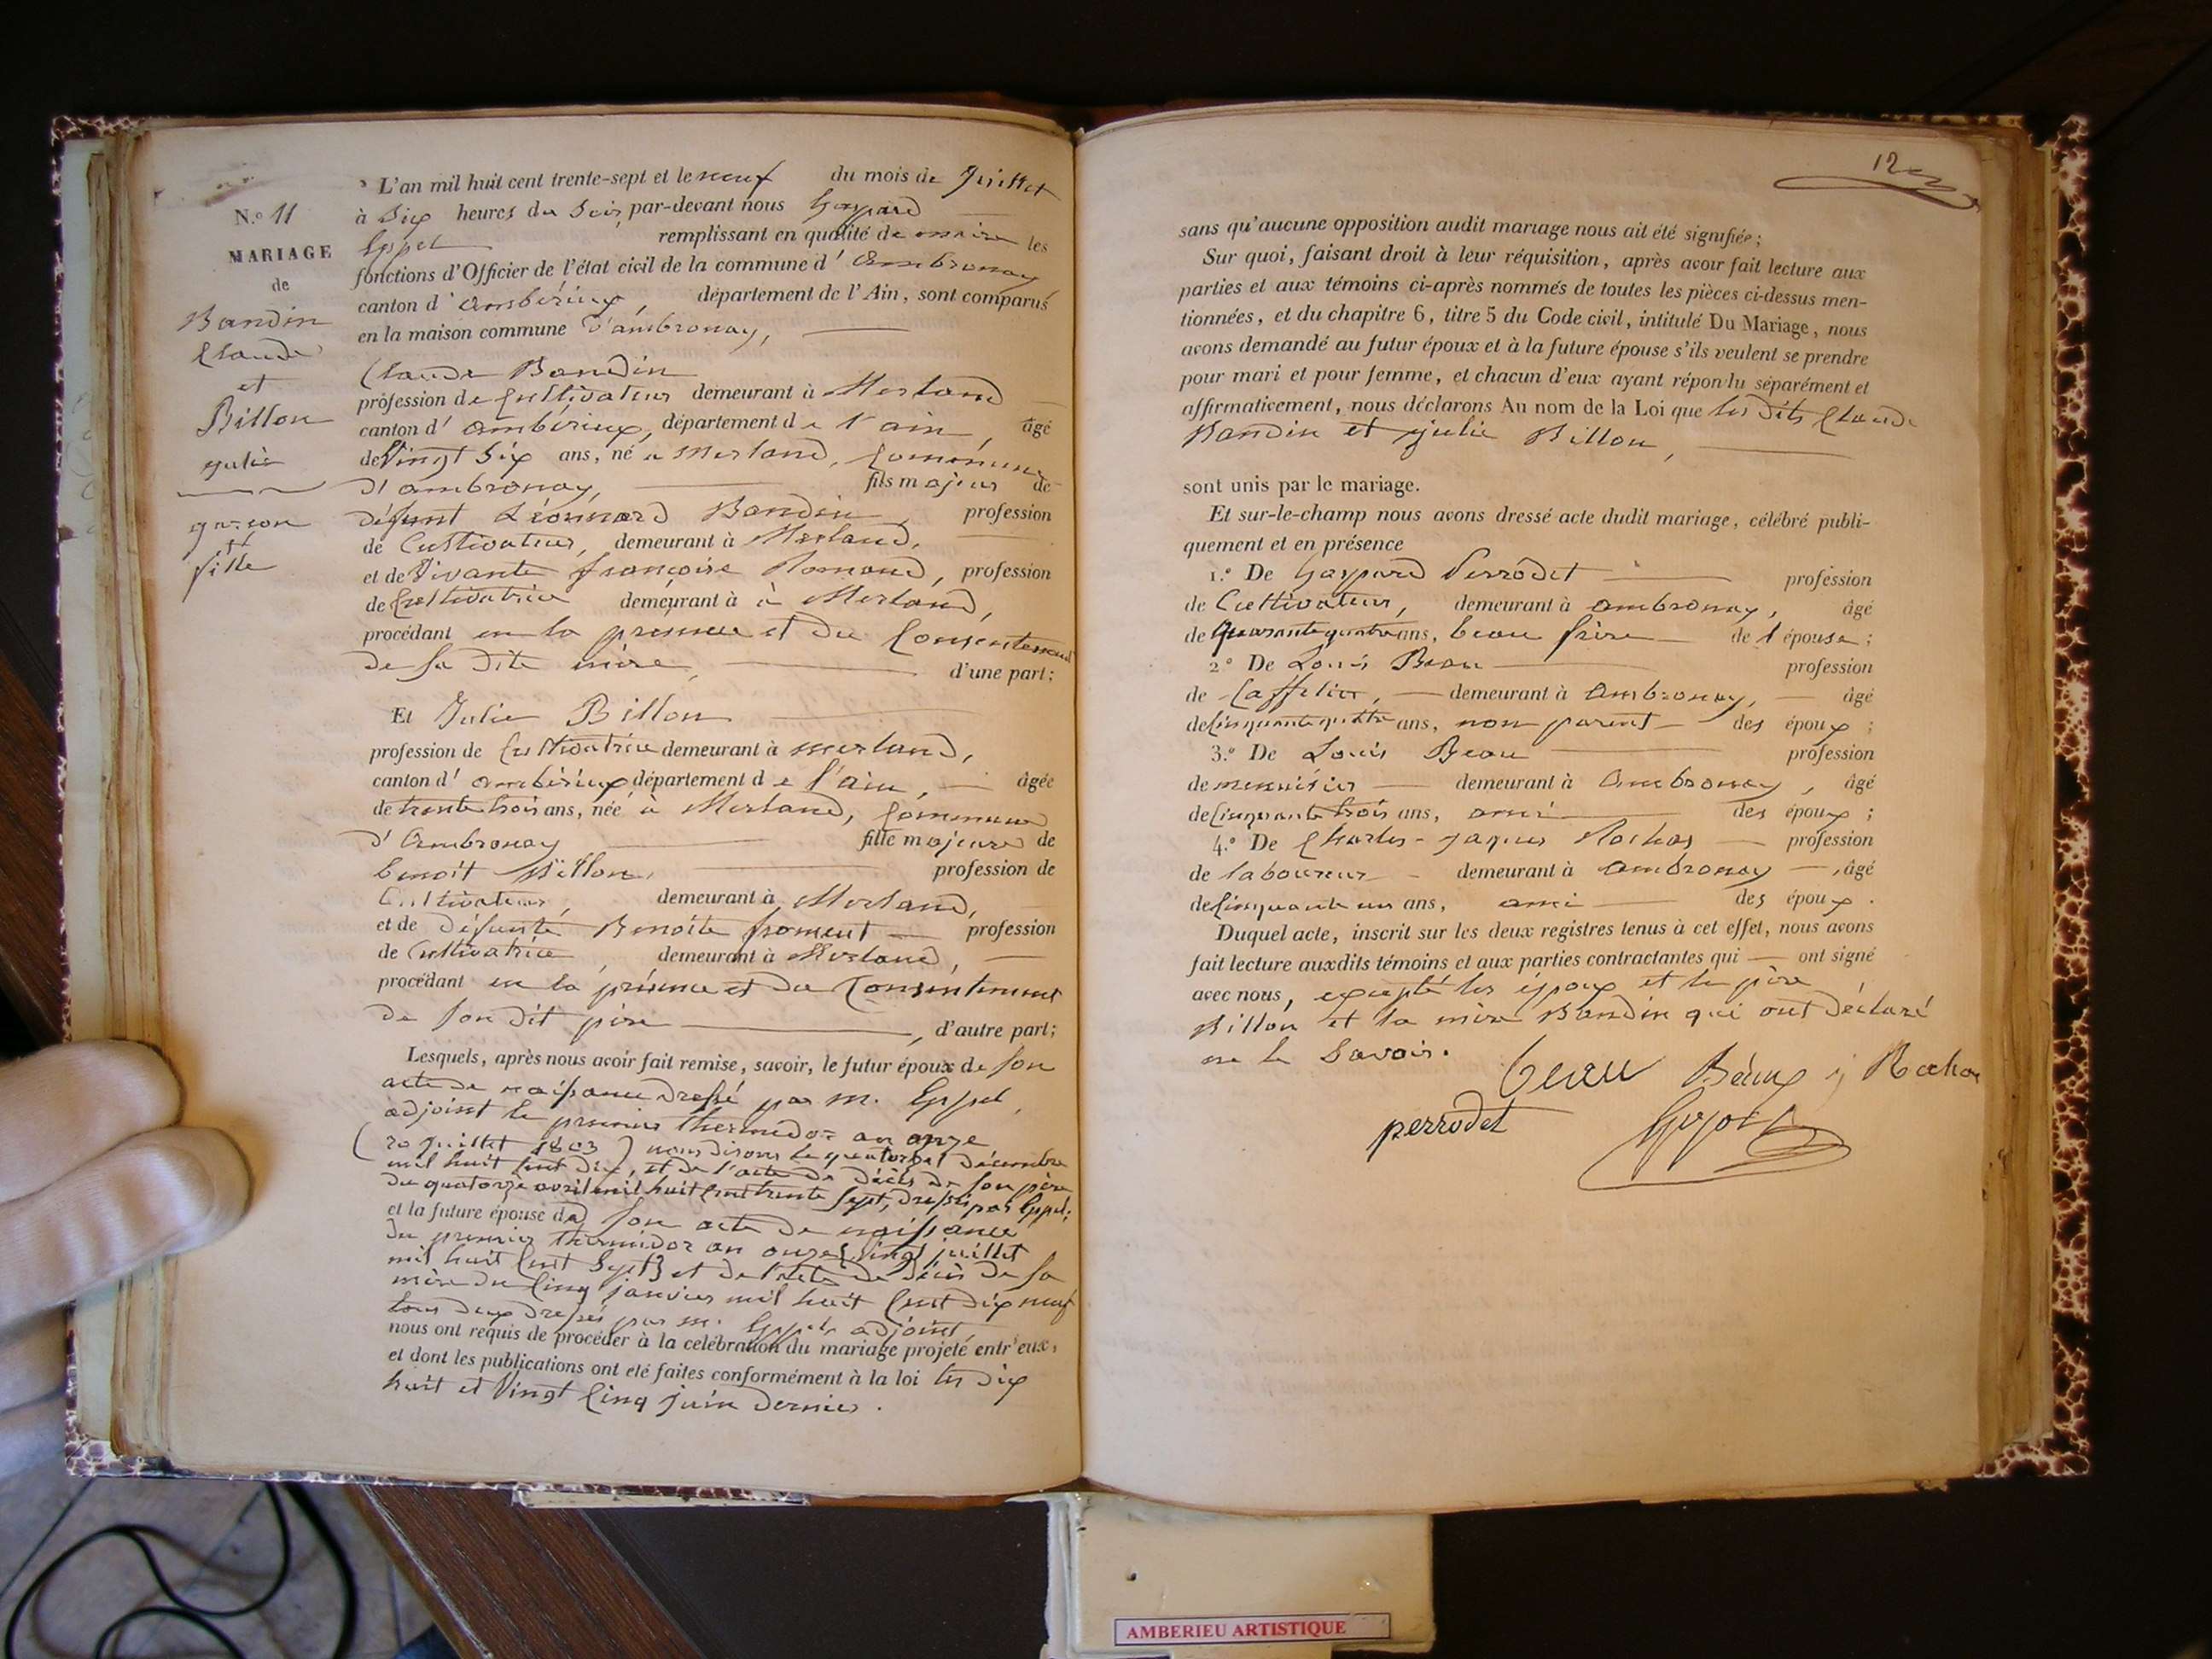 N.o 11
MARIAGE
de
Bandin
Claude
et
Billon
julie
garçon
et
fille
L'an mil huit cent trente-sept et le neuf du mois de Juillet
à Six heures du Soir, par-devant nous Gaspard
Eppel remplissant en qualité de maire les
fonctions d'Officier de l'état civil de la commune d'Ambronay
canton d'ambérieux, département de l'Ain, sont comparus
en la maison commune d'ambronay,
Claude Bandin
profession de Cultivateur demeurant à Merland
canton d'ambérieux, département de l'ain, âgé
de Vingt Six ans, né à Merland, Commune
d'ambronay, fils majeur de
défunt Léonnard Bandin, profession
de Cultivateur, demeurant à Merland,
et de Vivante françoise Romand, profession
de Cultivatrice demeurant à à Merland,
procédant en la présence et du Consentement
de sa dite mère, d'une part;
Et Julie Billon
profession de Cultivatrice demeurant à merland,
canton d'ambérieux, département de l'ain, âgée
de trente trois ans, née à Merland, Commune
d'Ambronay fille majeure de
benoit Billon, profession de
Cultivateur, demeurant à Merland,
et de défunte Benoîte froment profession
de Cultivatrice, demeurant à Merland,
procédant en la présence et du Consentement
de son dit père, d'autre part;
Lesquels, après nous avoir fait remise, savoir, le futur époux de son
acte de naissance dressé par m. Eppel,
adjoint le premier thermidor an onze
(20 juillet 1803) nous disons le quatorze décembre
mil huit cent dix, et de l'acte de décès de son père
du quatorze avril mil huit cent trente sept, dressé par Eppel;
et la future épouse de son acte de naissance
du premier thermidor an onze (Vingt juillet
mil huit cent Sept) et de l'acte de décès de sa
mère du Cinq janvier mil huit cent dix neuf
tous deux dressés par m. Eppel, adjoint,
nous ont requis de procéder à la célébration du mariage projeté entr'eux,
et dont les publications ont été faites conformément à la loi les dix
huit et Vingt Cinq juin dernier.
12
sans qu'aucune opposition audit mariage nous ait été signifiée;
Sur quoi, faisant droit à leur réquisition, après avoir fait lecture aux
parties et aux témoins ci-après nommés de toutes les pièces ci-dessus men-
tionnées, et du chapitre 6, titre 5 du Code civil, intitulé Du Mariage, nous
avons demandé au futur époux et à la future épouse s'ils veulent se prendre
pour mari et pour femme, et chacun d'eux ayant répondu séparément et
affirmativement, nous déclarons Au nom de la Loi que les dits Claude
Bandin et julie Billon,
sont unis par le mariage.
Et sur-le-champ nous avons dressé acte dudit mariage, célébré publi-
quement et en présence
1.o De Gaspard Perrodet profession
de Cultivateur, demeurant à ambronay, âgé
de Quarante quatre ans, beau frère de l'épouse;
2.o De Louis Beau profession
de Caffetier, demeurant à Ambronay, âgé
de Cinquante quatre ans, non parent des époux;
3.o De Louis Beau profession
de menuisier demeurant à Ambronay, âgé
de Cinquante trois ans, ami des époux;
4.o De Charles-jaques Rochas profession
de laboureur demeurant à Ambronay, âgé
de Cinquante un ans, ami des époux.
Duquel acte, inscrit sur les deux registres tenus à cet effet, nous avons
fait lecture auxdits témoins et aux parties contractantes qui ont signé
avec nous, excepté les époux et le père
Billon et la mère Bandin qui ont déclaré
ne le Savoir.
Beau j Rochas
perrodet
AMBERIEU ARTISTIQUE